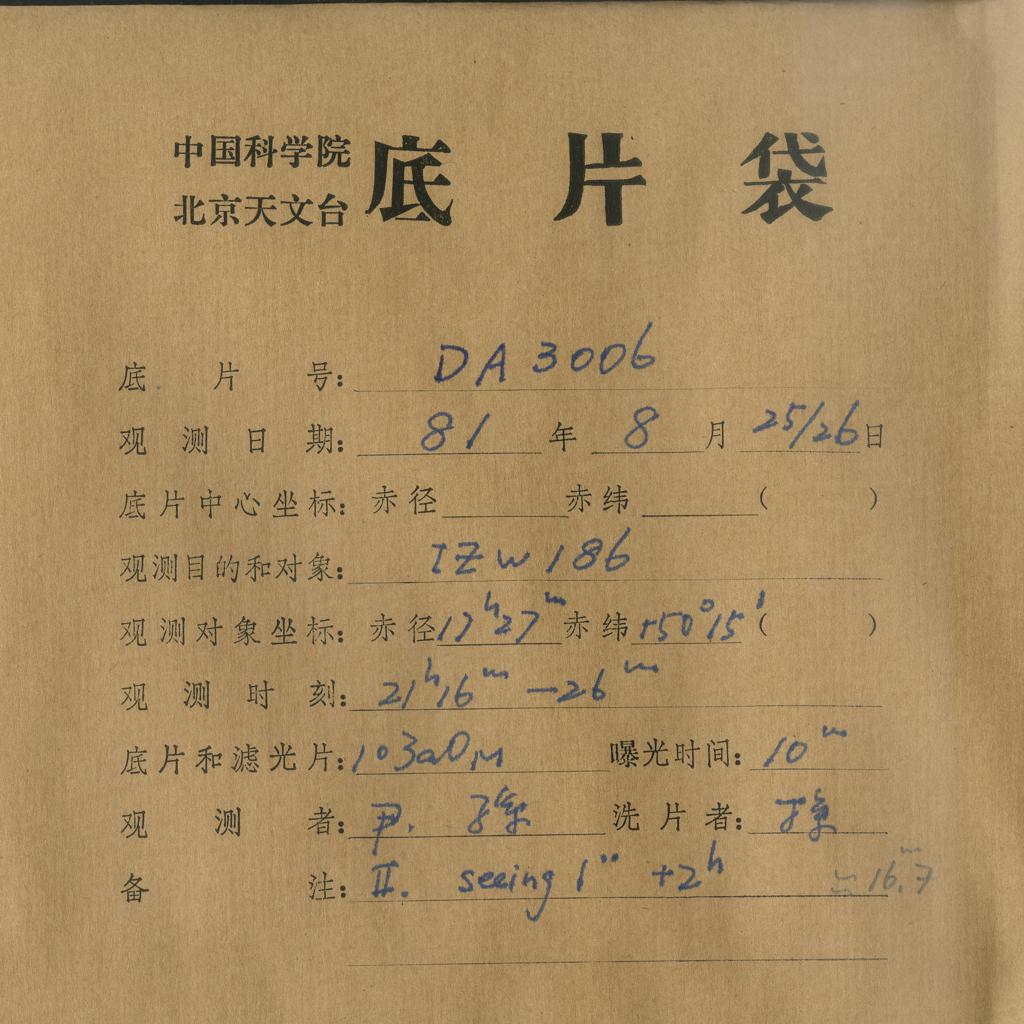 中国科学院
北京天文台
底片袋
底片号: DA 3006
观测日期: 81 年 8 月 25/26 日
底片中心坐标: 赤径 赤纬 ( )
观测目的和对象: IZw 186
观测对象坐标: 赤径 17h27m 赤纬 +50°15′ ( )
观测时刻: 21h16m—26m
底片和滤光片: 103aO 曝光时间: 10m
观测者: 尹. 洗片者:
备注: II. seeing 1″ +2h 16.m7